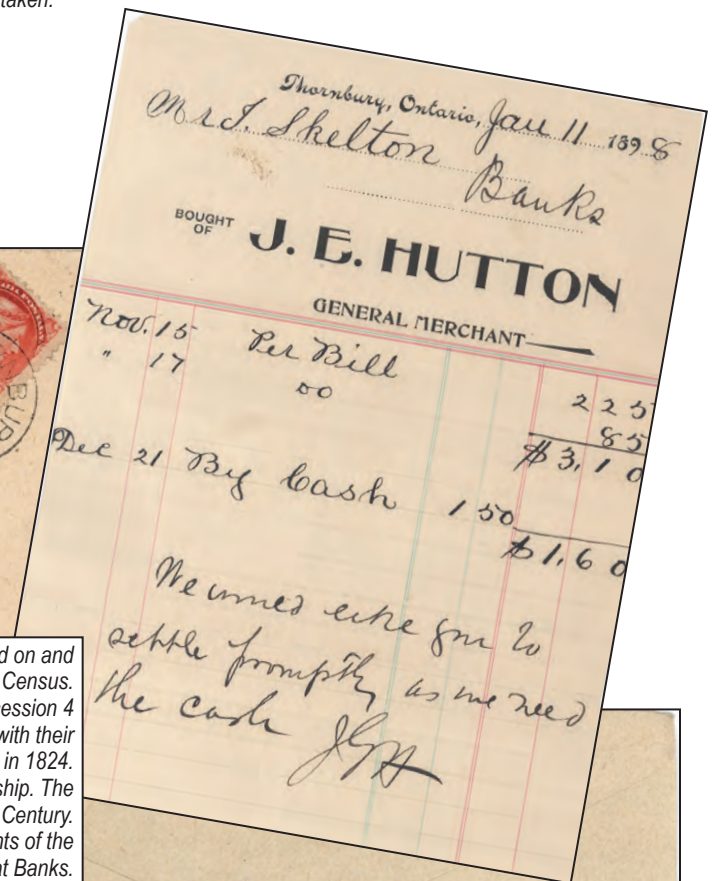 taken.
Thornbury, Ontario, Jan 11 1898
Mr J. Skelton
Banks
BOUGHT OF J. E. HUTTON
GENERAL MERCHANT
Nov. 15 Per Bill 2 25
" 17 DO 85
$3,10
Dec 21 By Cash 1 50
$1,60
We would like you to
settle promptly as we need
the cash JEH
BUR
d on and
Census.
ession 4
with their
in 1824.
ship. The
Century.
nts of the
at Banks.